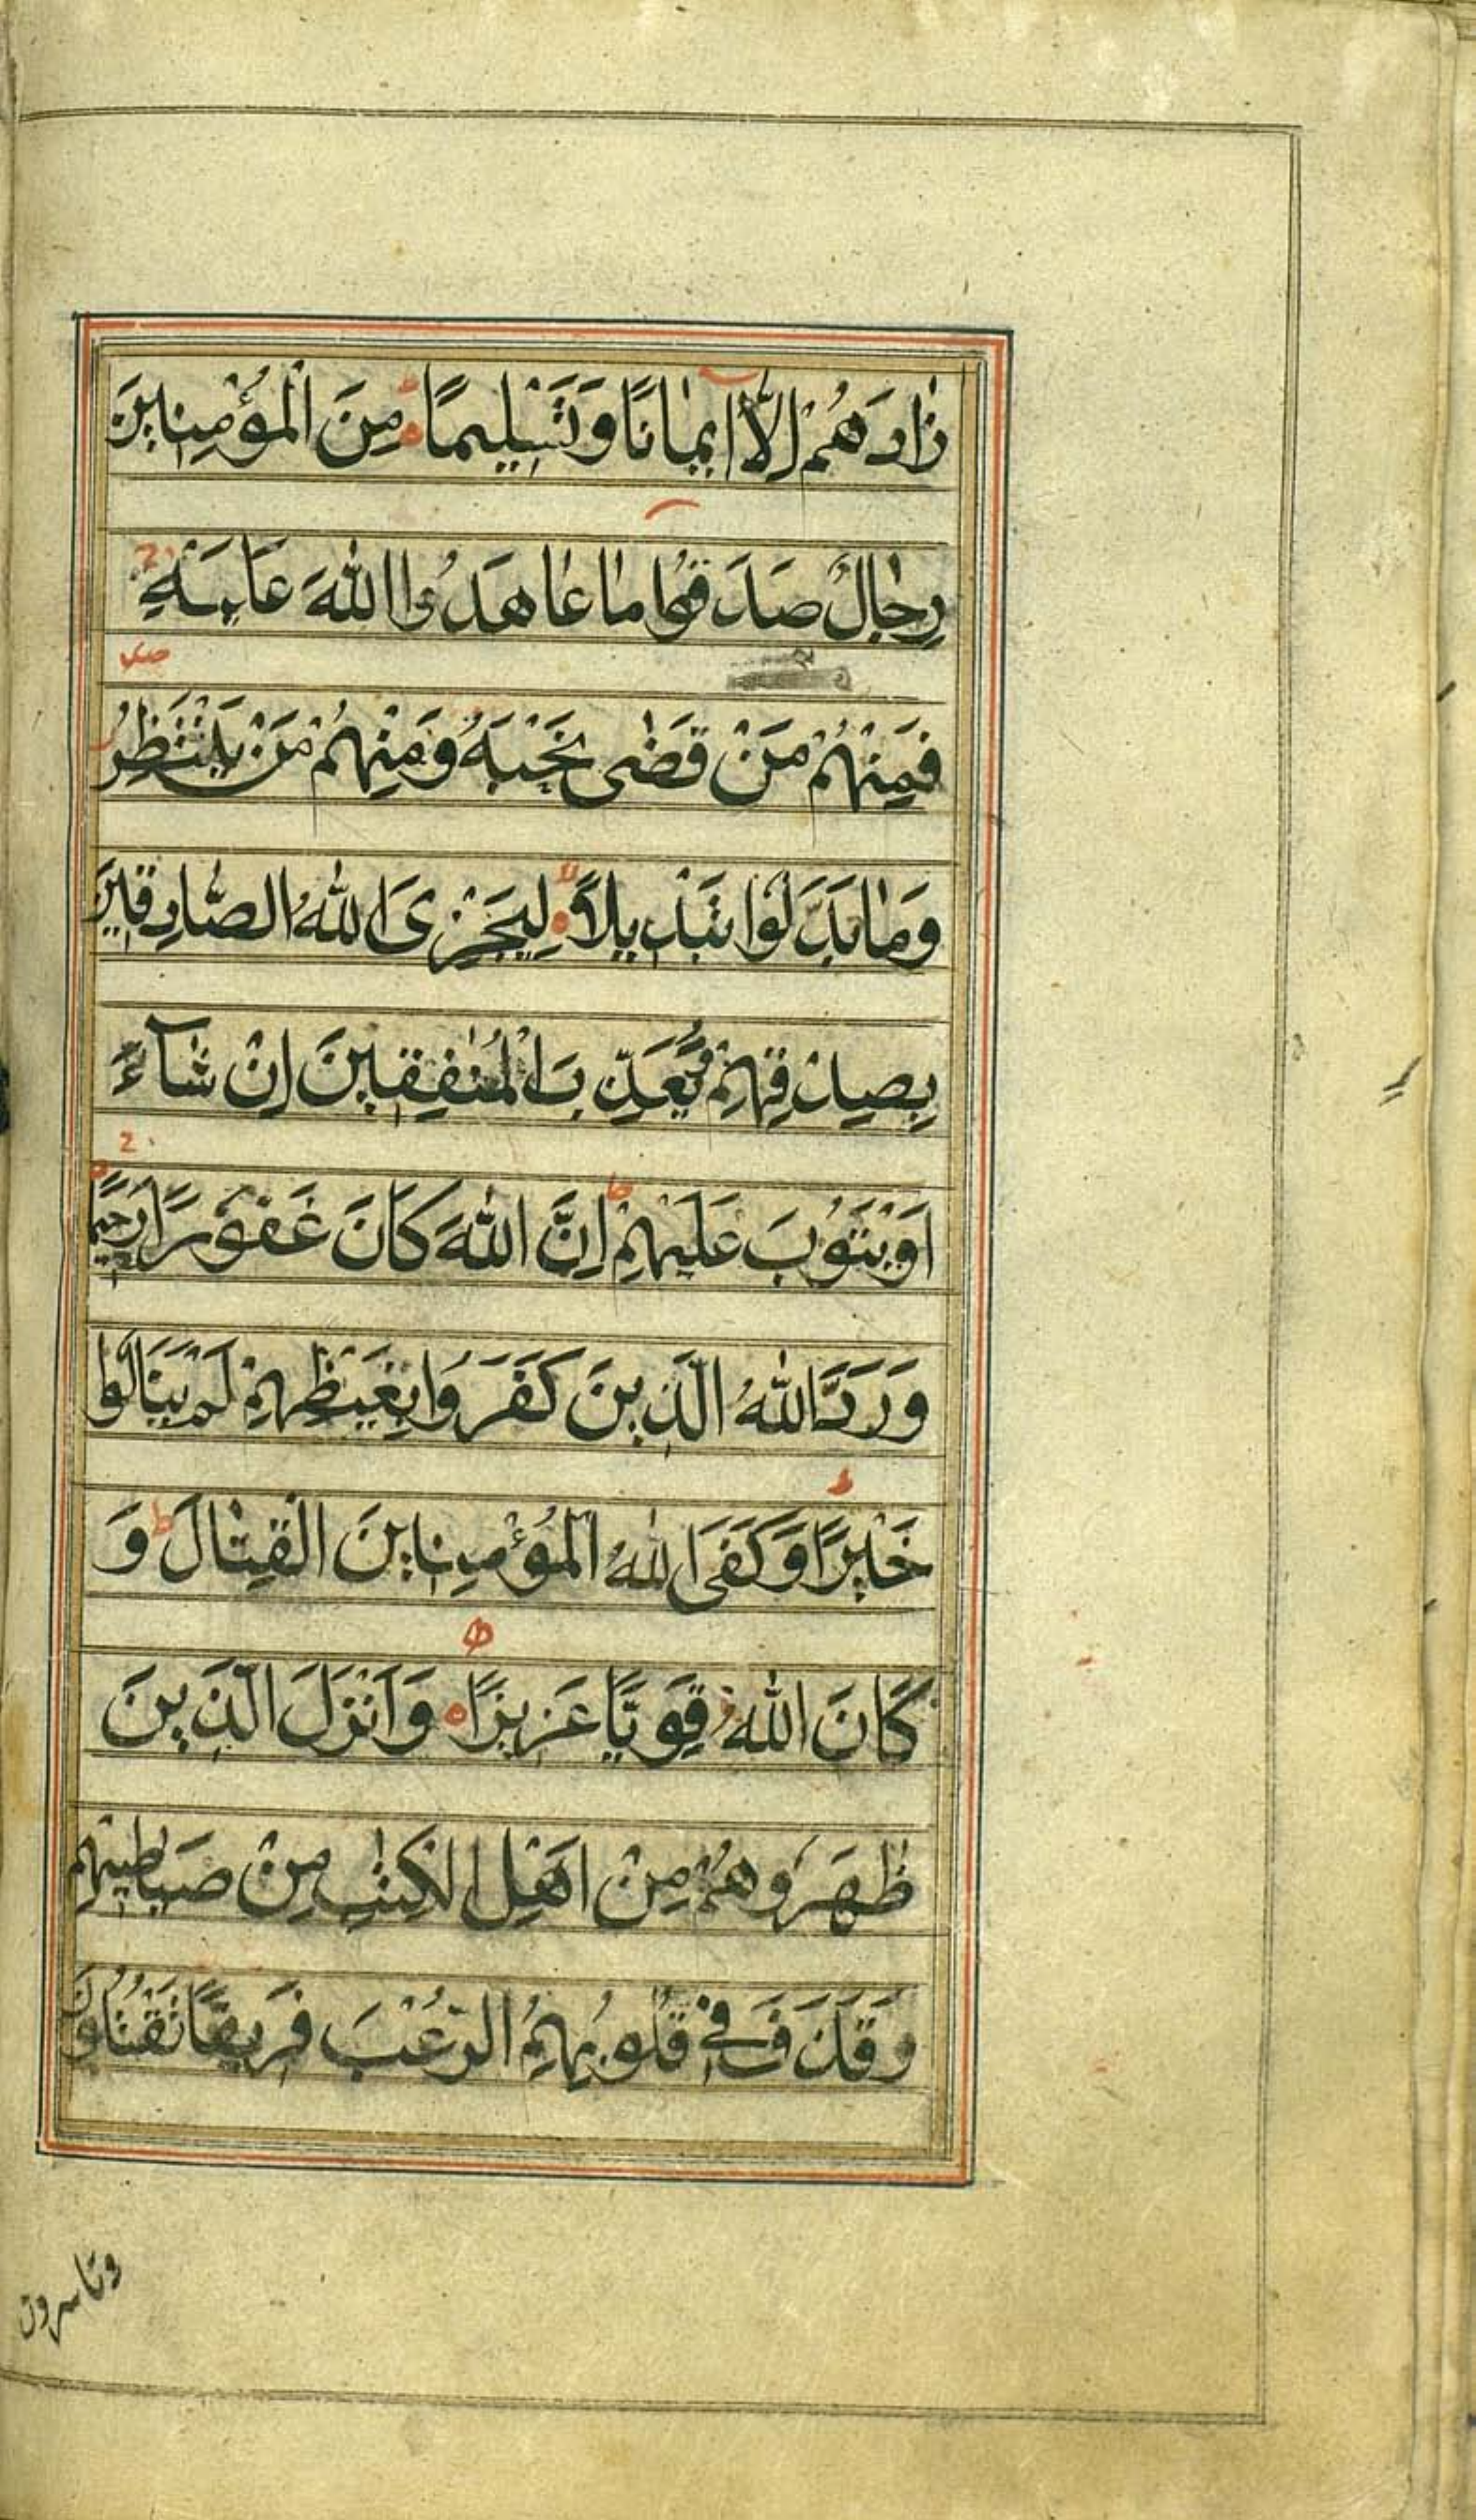 زَادَهُمْ اِلَّآ اِيمَانًا وَتَسْلِيمًا ه مِنَ الْمُؤْمِنِينَ
رِجَالٌ صَدَقُوا مَا عَاهَدُوا اللّٰهَ عَلَيْهِ ج
فَمِنْهُمْ مَنْ قَضٰى نَحْبَهُ وَمِنْهُمْ مَنْ يَنْتَظِرُ صلى
وَمَا بَدَّلُوا تَبْدِيلًا ه لا لِيَجْزِىَ اللّٰهُ الصَّادِقِينَ
بِصِدْقِهِمْ وَيُعَذِّبَ الْمُنٰفِقِينَ اِنْ شَآءَ
اَوْ يَتُوبَ عَلَيْهِمْ ط اِنَّ اللّٰهَ كَانَ غَفُورًا رَحِيمًا ج
وَرَدَّ اللّٰهُ الَّذِينَ كَفَرُوا بِغَيْظِهِمْ لَمْ يَنَالُوا
خَيْرًا ط وَكَفَى اللّٰهُ الْمُؤْمِنِينَ الْقِتَالَ ط وَ
كَانَ اللّٰهُ قَوِيًّا عَزِيزًا ه وَاَنْزَلَ الَّذِينَ
ظٰهَرُوهُمْ مِنْ اَهْلِ الْكِتٰبِ مِنْ صَيَاصِيهِمْ
وَقَذَفَ فِى قُلُوبِهِمُ الرُّعْبَ فَرِيقًا تَقْتُلُونَ
وتاسرون